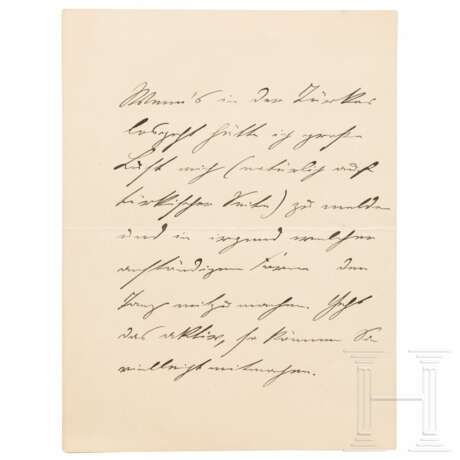 Wenn's in der Türkei
losgeht hätte ich große
Lust mich (natürlich auf
türkischer Seite) zu melden
und in irgend welcher
anständigen Form den
Tanz mitzumachen. Geht
das aktiv, so können Sie
vielleicht mitmachen.